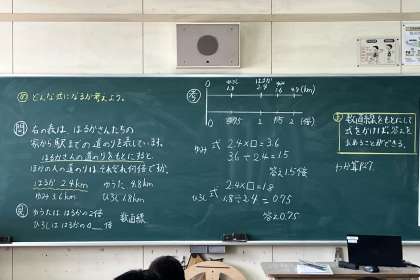 め どんな式になるか考えよう。
問 右の表は、はるかさんたちの
家から駅までの道のりを表しています。
はるかさんの道のりをもとにすると、
ほかの人の道のりはそれぞれ何倍ですか。
はるか 2.4km ゆうた 4.8km
ゆみ 3.6km ひろし 1.8km
見 ゆうたは はるかの2倍
ひろしは はるかの0.__倍
数直線
考
ひろし はるか ゆみ
0 1.8 2.4 3.6 4.8 (km)
0 0.75 1 1.5 2 (倍)
ゆみ 式 2.4×□=3.6
3.6÷2.4=1.5
答え1.5倍
ひろし 式 2.4×□=1.8
1.8÷2.4=0.75
答え0.75
ま 数直線をもとにして
式をかけば、答えを
求めることができる。
わり算